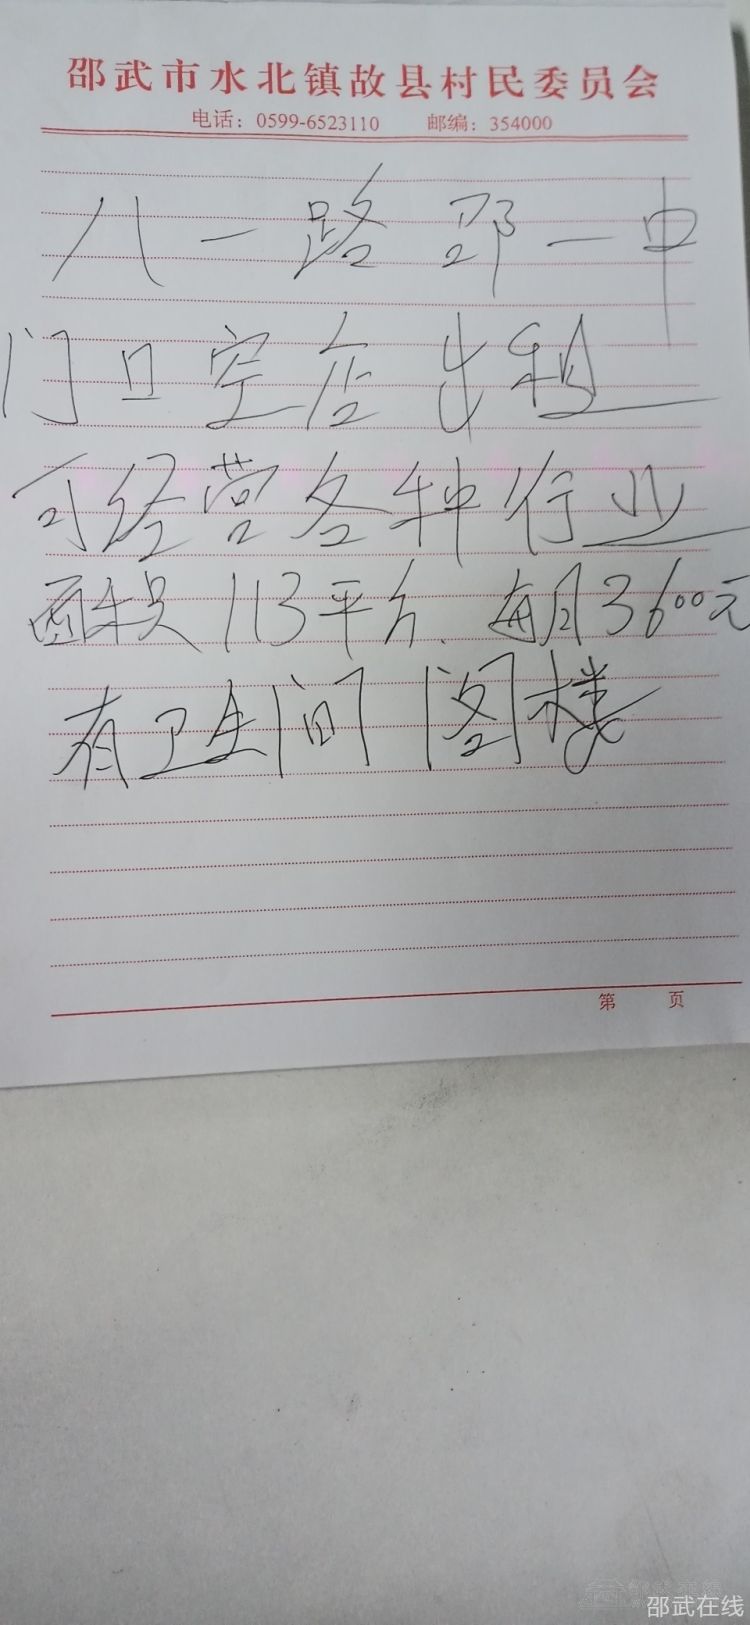 邵武市水北镇故县村民委员会
电话：0599-6523110 邮编：354000
八一路 邵一中
门口空店出租
可经营各种行业
面积113平方.每月3600元
有卫生间 阁楼
第 页
邵武在线